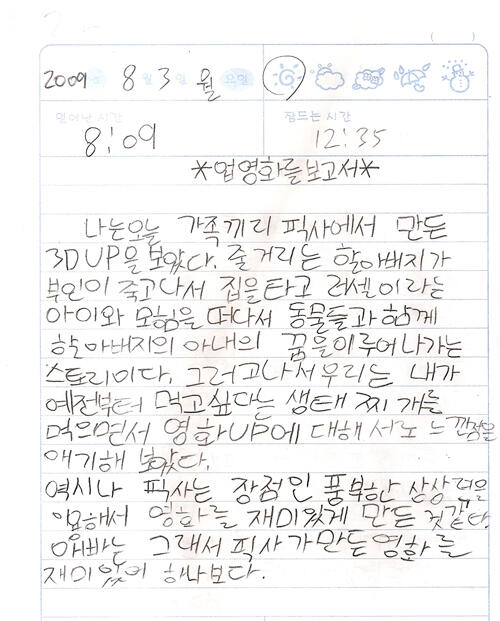 2009 년 8 월 3 일 월 요일
일어난 시간 잠드는 시간
8:09 12:35
*업영화를보고서*
나는오늘 가족끼리 픽사에서 만든
3D UP을 보았다. 줄거리는 할아버지가
부인이 죽고나서 집을타고 러셀이라는
아이와 모험을 떠나서 동물들과 함께
할아버지의 아내의 꿈을이루어나가는
스토리이다. 그러고나서우리는 내가
예전부터 먹고싶다는 생태찌개를
먹으면서 영화UP에 대해 서로 느낀점을
얘기해 보았다.
역시나 픽사는 장점인 풍부한 상상력을
이용해서 영화를 재미있게 만든 것같다.
아빠는 그래서 픽사가만든영화를
재미있어 하나보다.